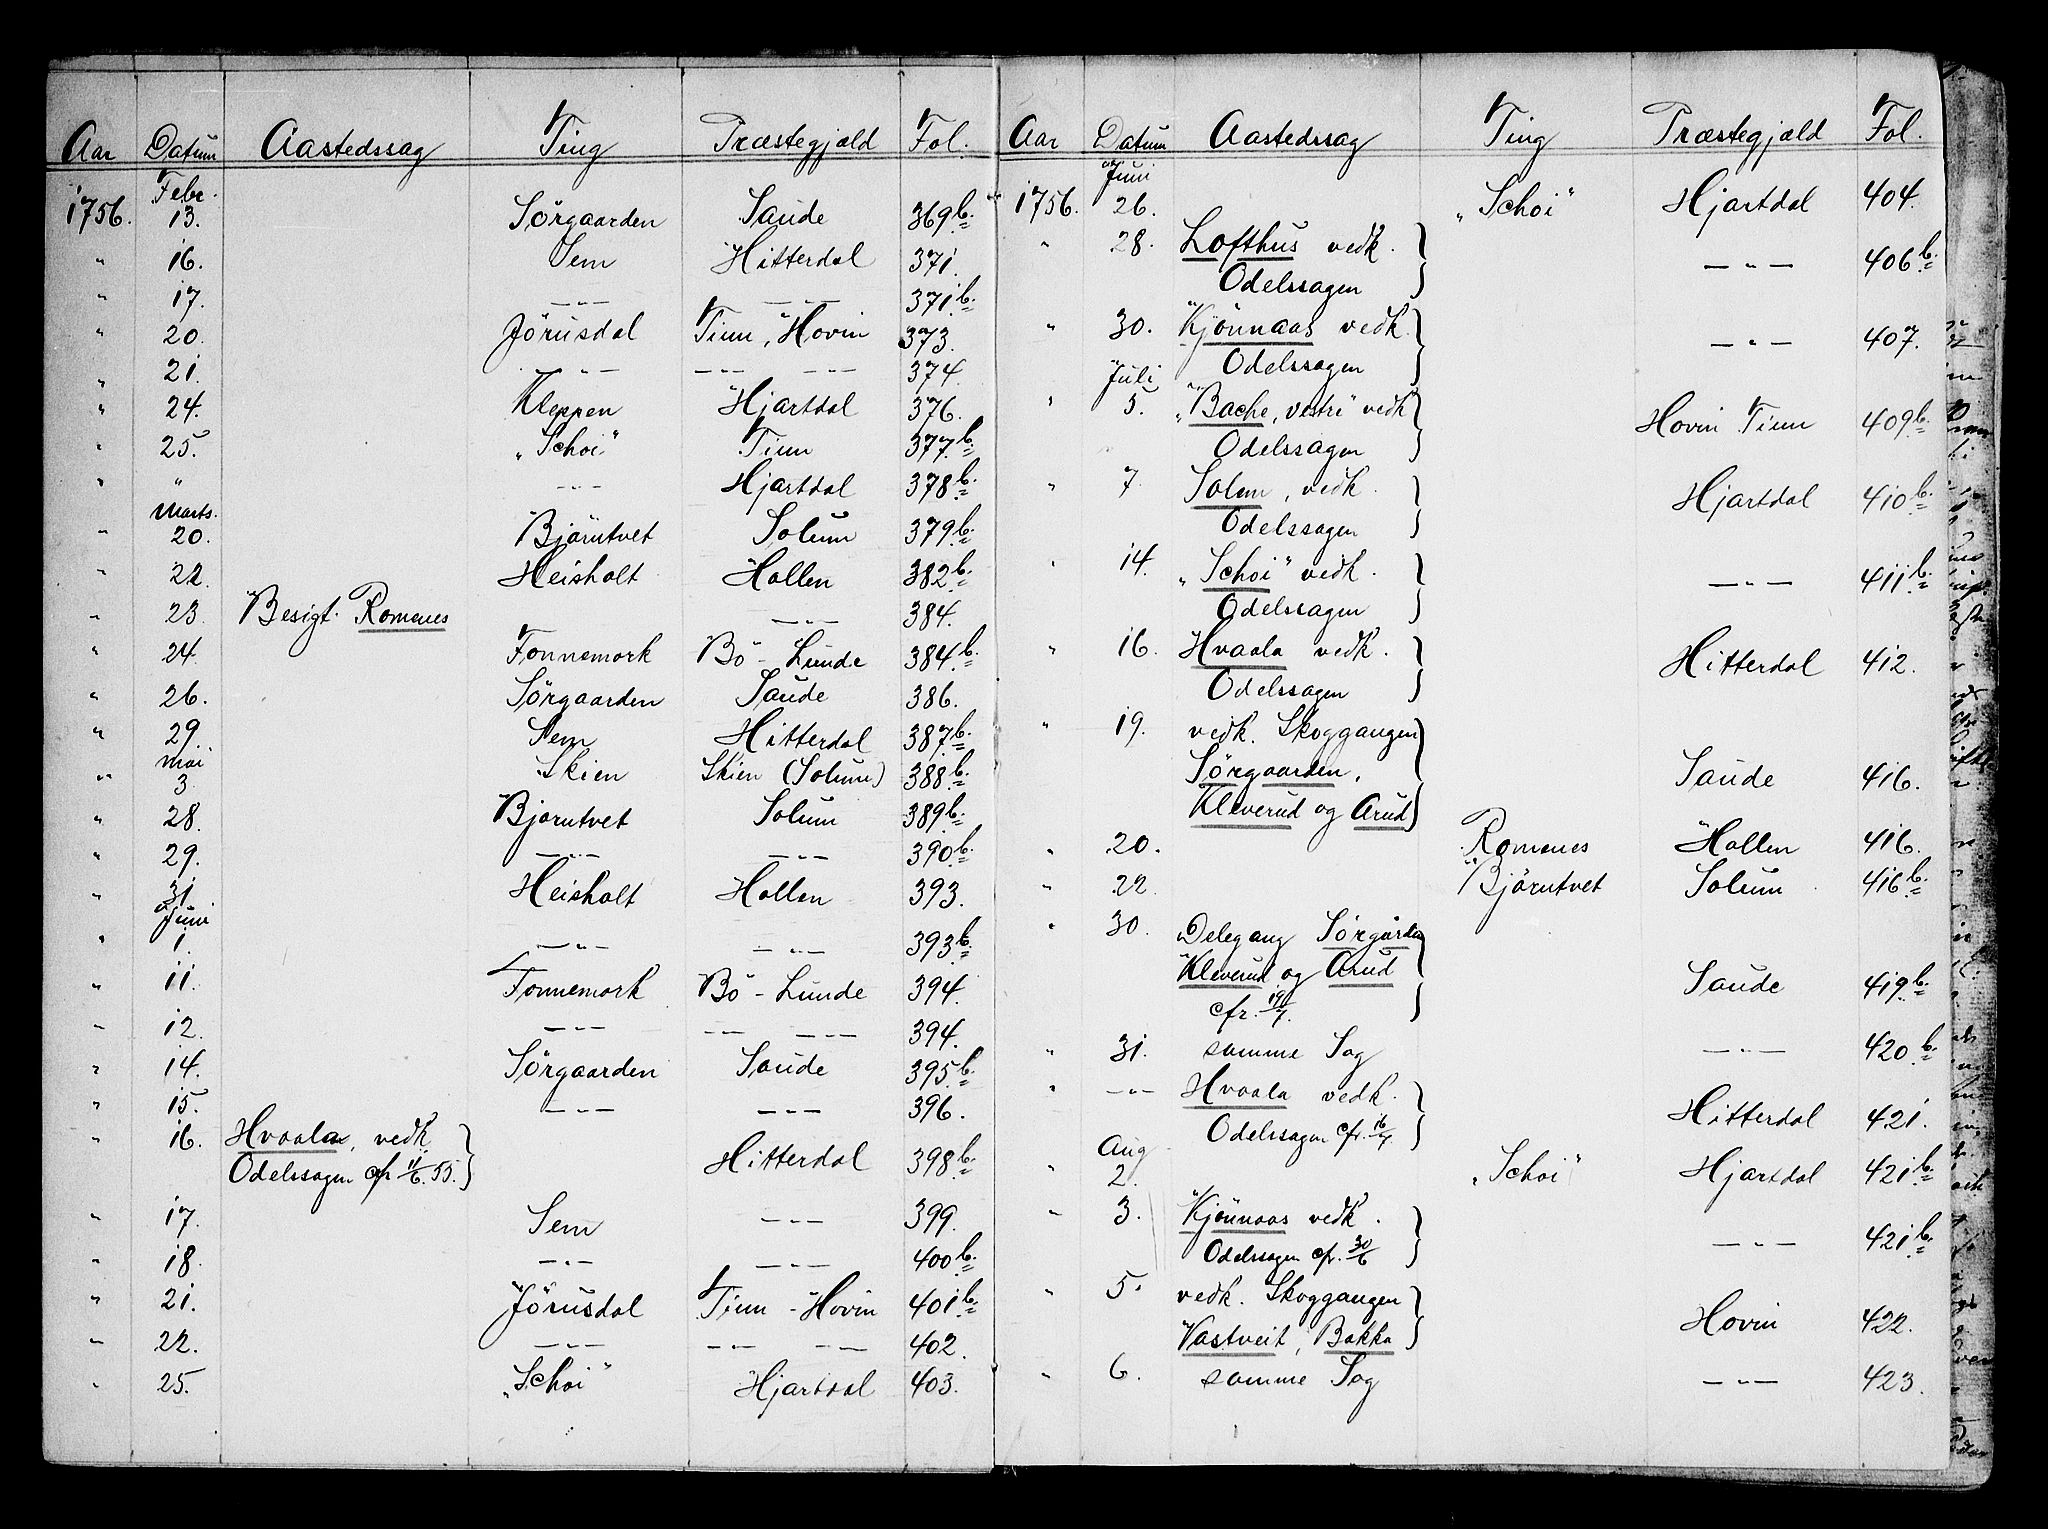 Aar Datum Aastedssag Ting Præstegjæld Fol.
Febr.
1756. 13. Sörgaarden Saude 369 b.
" 16. Sem Hitterdal 371.
" 17. —"— —"— 371 b.
" 20. Jörusdal Tinn, Hovin 373.
" 21. —"— —"— —"— 374.
" 24. Kleppen Hjartdal 376.
" 25. "Schoi" Tinn 377 b.
" " —"— Hjartdal 378 b.
Marts.
" 20. Bjõrntvet Solum 379 b.
" 22. Heisholt Hollen 382 b.
" 23. Besigt. Romenes —"— 384.
" 24. Fonnemork Bö - Lunde 384 b.
" 26. Sörgaarden Saude 386.
" 29. Sem Hitterdal 387 b.
Mai
" 3. Skien Skien (Solum) 388 b.
" 28. Bjõrntvet Solum 389 b.
" 29. —"— —"— 390 b.
" 31. Heisholt Hollen 393.
Juni
" 1. —"— —"— 393 b.
" 11. Fonnemork Bö - Lunde 394.
" 12. —"— —"— —"— 394.
" 14. Sörgaarden Saude 395 b.
" 15. —"— —"— 396.
" 16. Hvaala, vedk.
Odelssagen cfr 11/6. 55. Hitterdal 398 b.
" 17. Sem —"— 399.
" 18. —"— —"— 400 b.
" 21. Jörusdal Tinn - Hovin 401 b.
" 22. —"— —"— —"— 402.
" 25. "Schoi" Hjartdal 403.
Aar Datum Aastedssag Ting Præstegjæld Fol.
Juni
1756. 26. "Schoi" Hjartdal 404.
" 28. Lofthus vedk.
Odelssagen —"— 406 b.
" 30. Kjõnnaas vedk.
Odelssagen —"— 407.
Juli
" 5. "Bache, vestri" vedk
Odelssagen Hovin Tinn 409 b.
" 7. Solem, vedk.
Odelssagen Hjartdal 410 b.
" 14. "Schoi" vedk.
Odelssagen —"— 411 b.
" 16. Hvaala vedk.
Odelssagen Hitterdal 412.
" 19. vedk. Skoggangen
Sörgaarden,
Kleverud og Arud Saude 416.
" 20. Romenes Hollen 416.
" 22. Bjõrntvet Solum 416 b.
" 30. Delegang Sörgården
Kleverud og Arud
cfr. 19/7. Saude 419 b.
" 31. samme Sag —"— 420 b.
" —"— Hvaala vedk.
Odelssagen cfr. 16/7. Hitterdal 421.
Aug
" 2. "Schoi" Hjartdal 421 b.
" 3. Kjõnnaas vedk.
Odelssagen cfr. 30/6 —"— 421 b.
" 5. vedk. Skoggangen
Vastveit, Bakka Hovin 422.
" 6. samme Sag —"— 423.